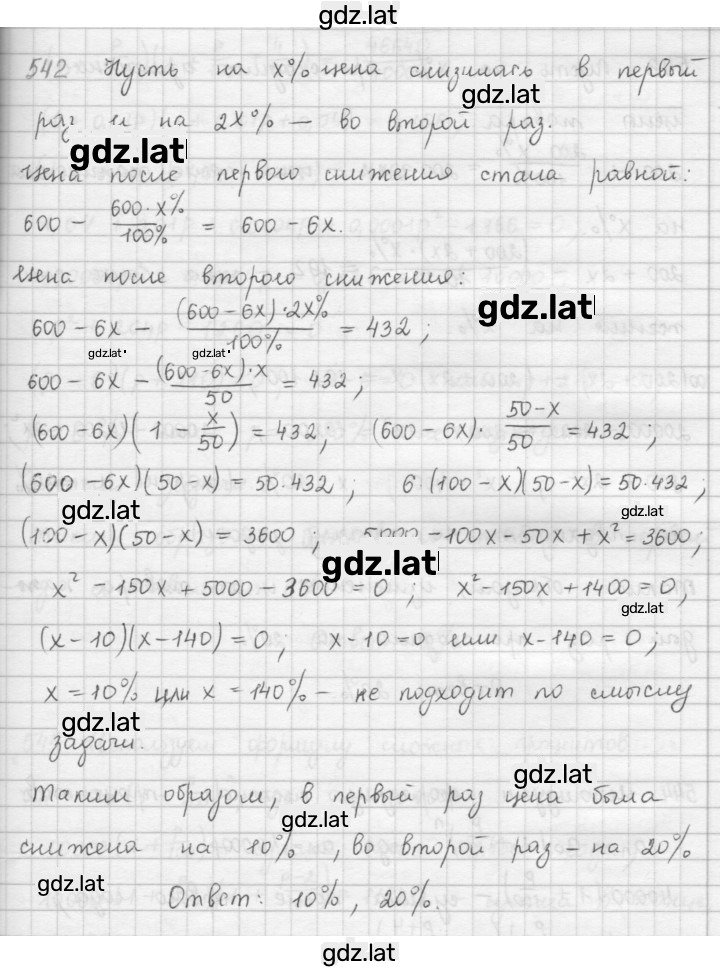 gdz.lat
542 Пусть на x% цена снизилась в первый
gdz.lat
раз и на 2x% — во второй раз.
gdz.lat
Цена после первого снижения стала равной:
600 - 600·x%/100% = 600 - 6x.
Цена после второго снижения:
gdz.lat
600 - 6x - (600-6x)·2x%/100% = 432;
gdz.lat gdz.lat
600 - 6x - (600-6x)·x/50 = 432;
(600-6x)(1 - x/50) = 432; (600-6x)· 50-x/50 = 432;
(600-6x)(50-x) = 50·432; 6·(100-x)(50-x) = 50·432;
gdz.lat gdz.lat
(100-x)(50-x) = 3600; 5000-100x-50x+x² = 3600;
gdz.lat
x² - 150x + 5000 - 3600 = 0; x² - 150x + 1400 = 0;
gdz.lat
(x-10)(x-140) = 0; x-10 = 0 или x-140 = 0;
x = 10% или x = 140% - не подходит по смыслу
gdz.lat
задачи.
gdz.lat
Таким образом, в первый раз цена была
gdz.lat
снижена на 10%, во второй раз - на 20%
gdz.lat
Ответ: 10%, 20%.
gdz.lat